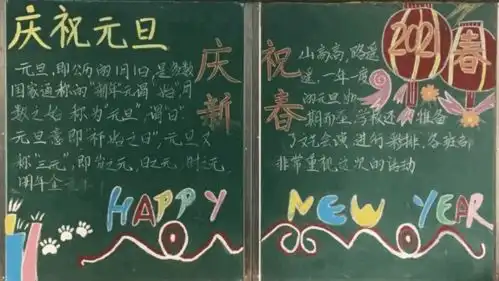 庆祝元旦
元旦,即公历的1月1日,是多数
国家通称的“新年”元谓“始”,月
数之始 称为“元旦”,谓“日”
元旦意即“初始之日”,元旦又
称“三元”,即岁之元,日之元,时之元
明年全
庆新
HAPPY
祝春
山高高,路遥
遥,一年一度
的元旦如
期而至,学校还 准备
了文艺会演 进行彩排,各班都
非常重视这次的活动
202
春
NEW YEAR